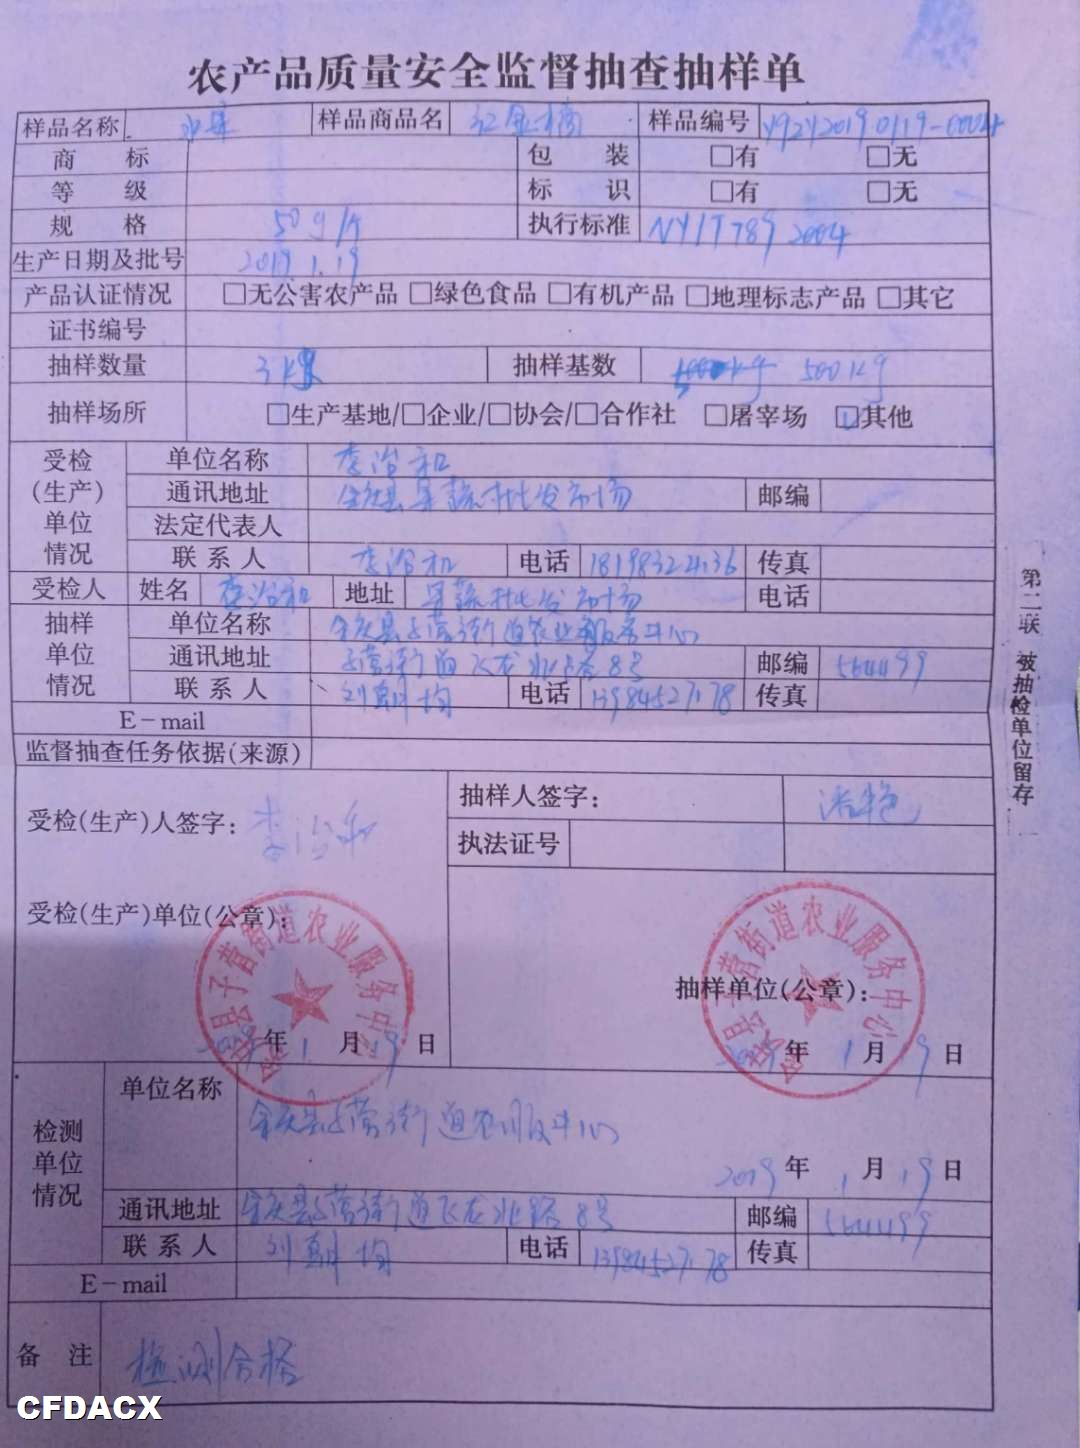 农产品质量安全监督抽查抽样单
样品名称 水果 样品商品名 红金桔 样品编号 YQZY20190119-0004
商标 包装 □有 □无
等级 标识 □有 □无
规格 50g/个 执行标准 NY/T789 2004
生产日期及批号 2019.1.19
产品认证情况 □无公害农产品 □绿色食品 □有机产品 □地理标志产品 □其它
证书编号
抽样数量 3kg 抽样基数 500kg
抽样场所 □生产基地/□企业/□协会/□合作社 □屠宰场 ☑其他
受检(生产)单位情况 单位名称 李治和
通讯地址 余庆县果蔬批发市场 邮编
法定代表人
联系人 李治和 电话 18198322436 传真
受检人 姓名 李治和 地址 果蔬批发市场 电话
抽样单位情况 单位名称 余庆县子营街道农业服务中心
通讯地址 子营街道飞龙北路8号 邮编 564499
联系人 电话 13984527178 传真
E-mail
监督抽查任务依据(来源)
受检(生产)人签字: 李治和 抽样人签字:
执法证号
受检(生产)单位(公章): 抽样单位(公章):
余庆县子营街道农业服务中心
余庆县子营街道农业服务中心
2019年1月19日 2019年1月19日
检测单位情况 单位名称 余庆县子营街道农服中心
2019年1月19日
通讯地址 余庆县子营街道飞龙北路8号 邮编 564499
联系人 电话 13984527178 传真
E-mail
备注 检测合格
第二联 被抽检单位留存
CFDACX